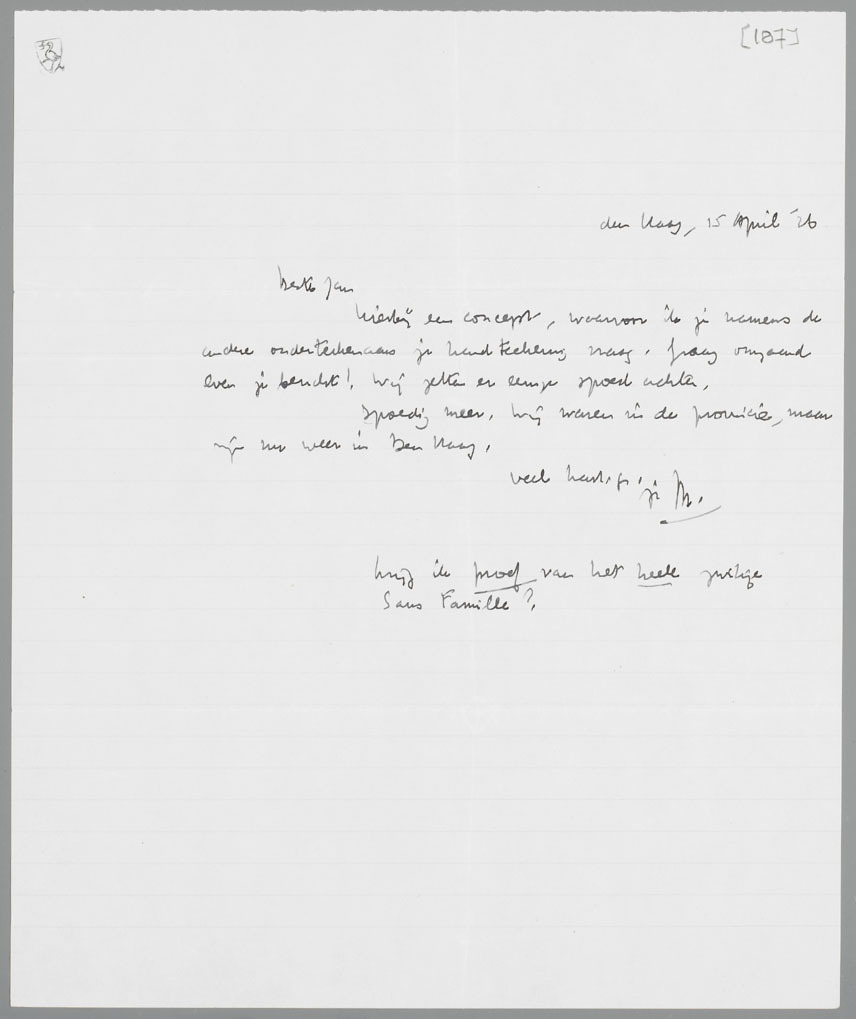 [107]
den Haag, 15 April '26
beste Jan
hierbij een concept, waarvoor ik je namens de
andere onderteekenaars je handteekening vraag. Graag omgaand
even je bericht! Wij zetten er eenige spoed achter.
Spoedig meer. Wij waren in de provincie, maar
zijn nu weer in Den Haag.
veel hart. gr.
je
Krijg ik proef van het heele
Sans Famille?